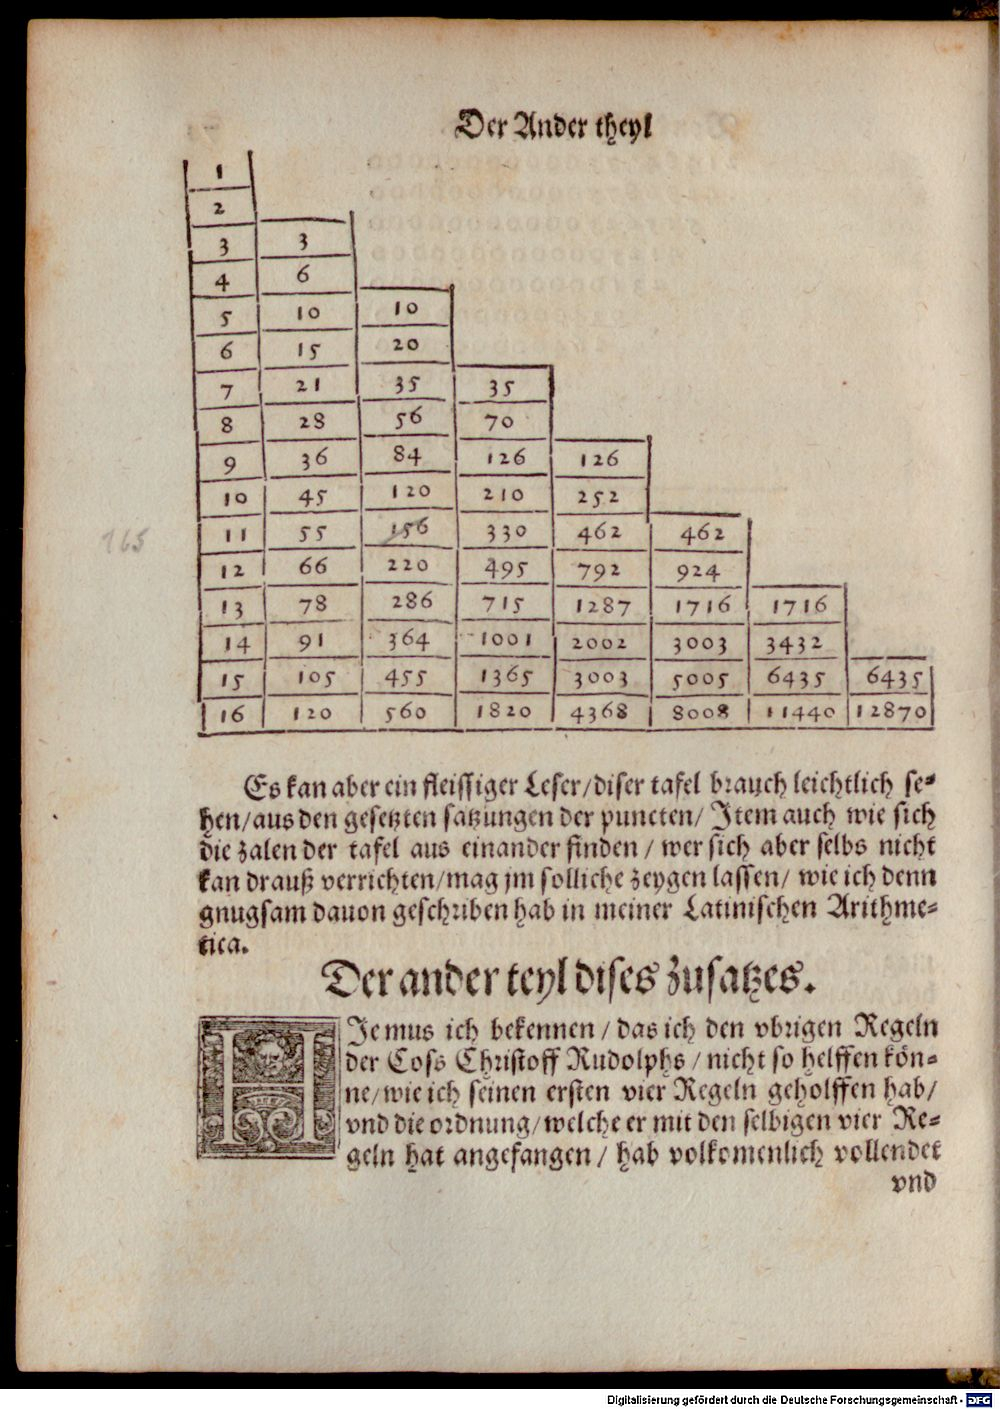 Der Ander theyl
1
2
3 3
4 6
5 10 10
6 15 20
7 21 35 35
8 28 56 70
9 36 84 126 126
10 45 120 210 252
165 11 55 156 330 462 462
12 66 220 495 792 924
13 78 286 715 1287 1716 1716
14 91 364 1001 2002 3003 3432
15 105 455 1365 3003 5005 6435 6435
16 120 560 1820 4368 8008 11440 12870
Es kan aber ein fleissiger Leser/diser tafel brauch leichtlich se-
hen/aus den gesetzten satzungen der puncten/ Item auch wie sich
die zalen der tafel aus einander finden / wer sich aber selbs nicht
kan drauß verrichten/mag jm solliche zeygen lassen/ wie ich denn
gnugsam dauon geschriben hab in meiner Latinischen Arithme-
tica.
Der ander teyl dises zusatzes.
HIe mus ich bekennen / das ich den vbrigen Regeln
der Coss Christoff Rudolphs / nicht so helffen kön-
ne/wie ich seinen ersten vier Regeln geholffen hab/
vnd die ordnung/welche er mit den selbigen vier Re-
geln hat angefangen / hab volkomenlich vollendet
vnd
Digitalisierung gefördert durch die Deutsche Forschungsgemeinschaft - DFG